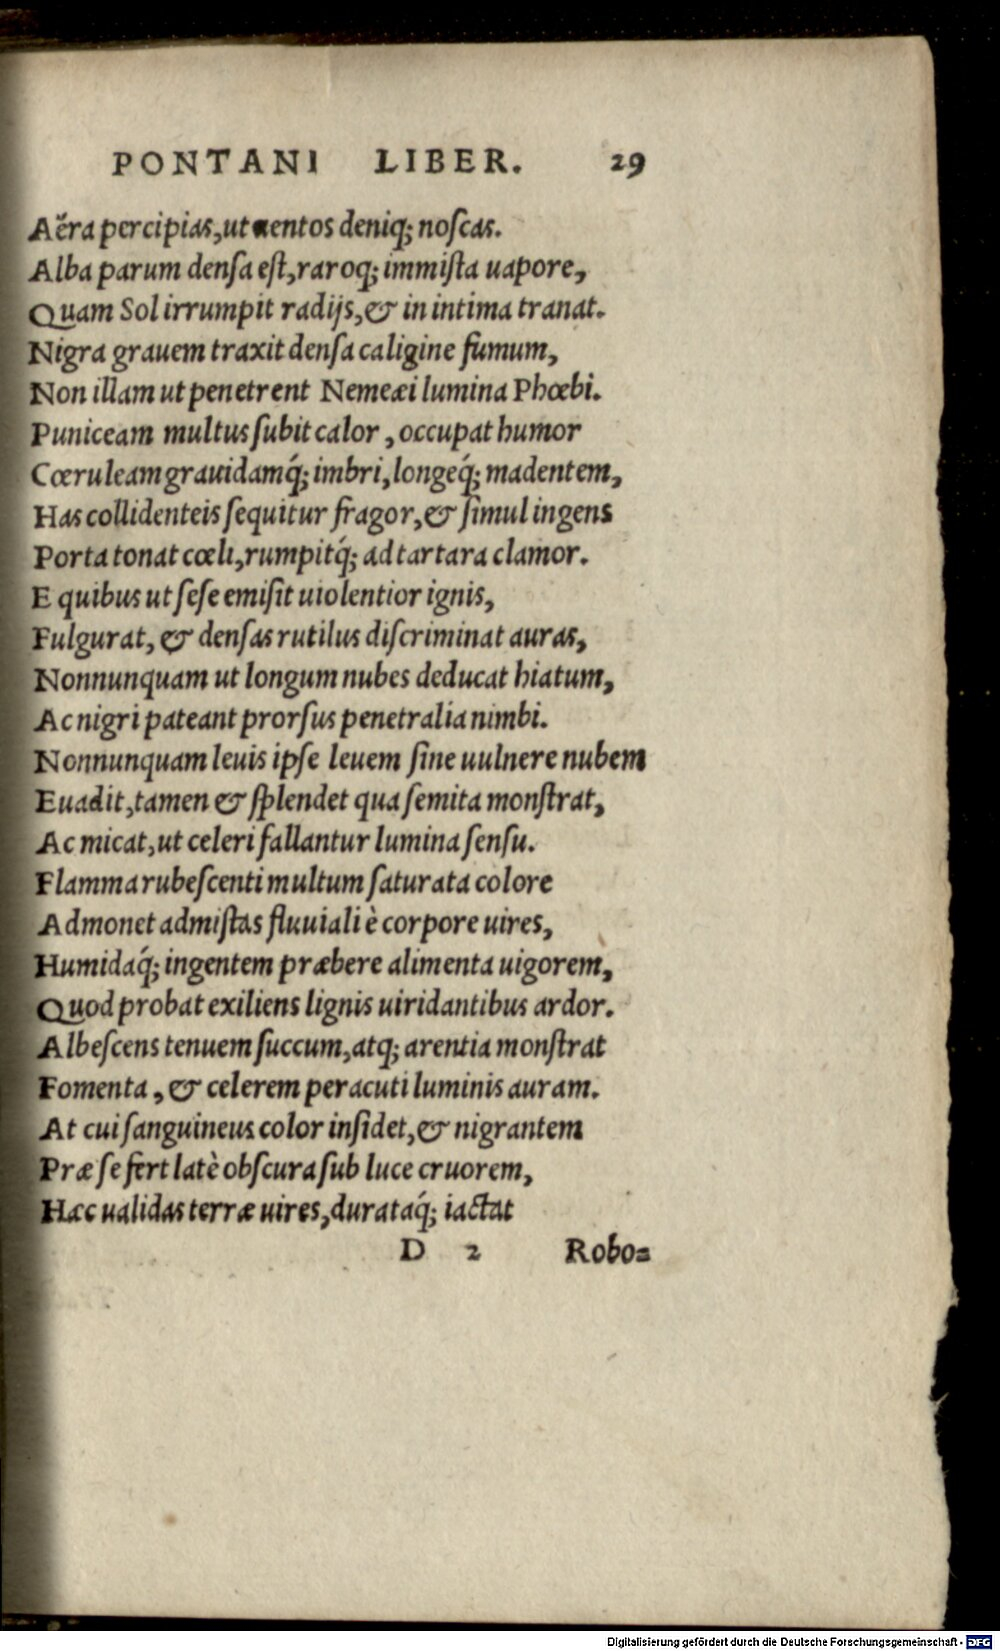 PONTANI LIBER. 29
Aëra percipias, ut uentos deniq; noſcas.
Alba parum denſa eſt, raroq; immiſta uapore,
Quam Sol irrumpit radijs, & in intima tranat.
Nigra grauem traxit denſa caligine fumum,
Non illam ut penetrent Nemeæi lumina Phœbi.
Puniceam multus ſubit calor, occupat humor
Cœruleam grauidamq́; imbri, longeq́; madentem,
Has collidenteis ſequitur fragor, & ſimul ingens
Porta tonat cœli, rumpitq́; ad tartara clamor.
E quibus ut ſeſe emiſit uiolentior ignis,
Fulgurat, & denſas rutilus diſcriminat auras,
Nonnunquam ut longum nubes deducat hiatum,
Ac nigri pateant prorſus penetralia nimbi.
Nonnunquam leuis ipſe leuem ſine uulnere nubem
Euadit, tamen & ſplendet qua ſemita monſtrat,
Ac micat, ut celeri fallantur lumina ſenſu.
Flamma rubeſcenti multum ſaturata colore
Admonet admiſtas fluuiali è corpore uires,
Humidaq́; ingentem præbere alimenta uigorem,
Quod probat exiliens lignis uiridantibus ardor.
Albeſcens tenuem ſuccum, atq; arentia monſtrat
Fomenta, & celerem peracuti luminis auram.
At cui ſanguineus color inſidet, & nigrantem
Præ ſe fert latè obſcura ſub luce cruorem,
Hæc ualidas terræ uires, durataq́; iactat
D 2 Robo=
Digitalisierung gefördert durch die Deutsche Forschungsgemeinschaft - DFG